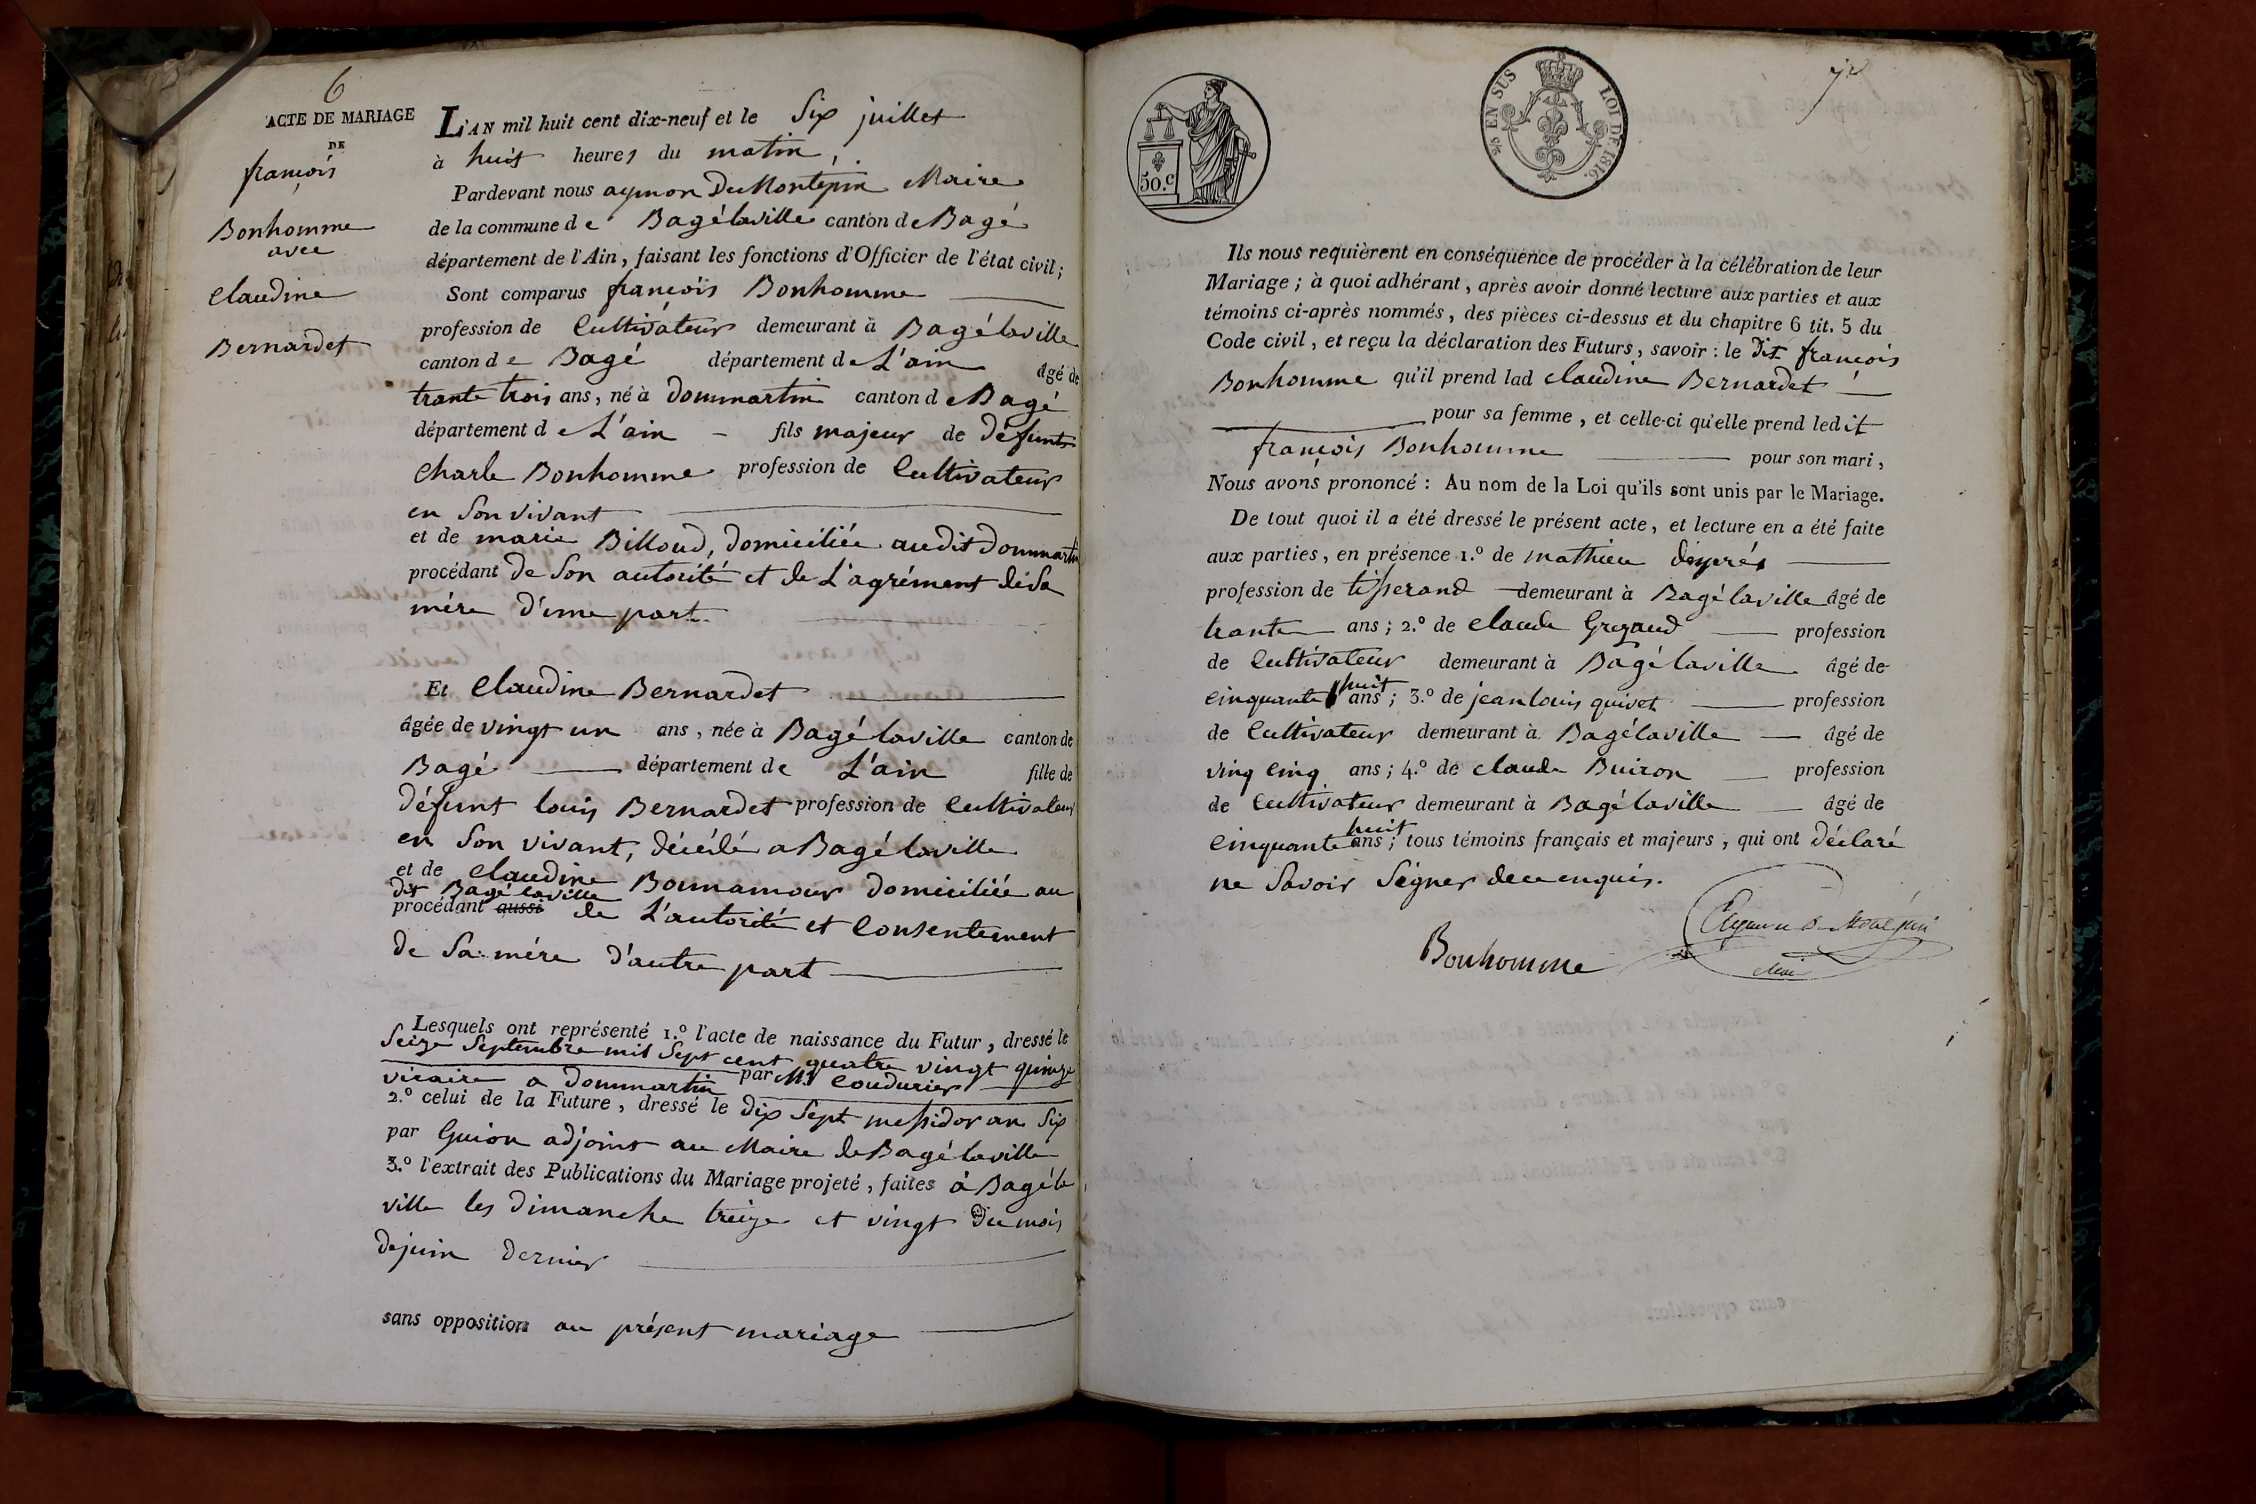 6
ACTE DE MARIAGE
DE
françois
Bonhomme
avec
Claudine
Bernardet
L'AN mil huit cent dix-neuf et le Six juillet
à huit heures du matin,
Pardevant nous aymon DuMontépin Maire
de la commune de Bagélaville canton de Bagé
département de l'Ain, faisant les fonctions d'Officier de l'état civil;
Sont comparus françois Bonhomme
profession de Cultivateur demeurant à Bagélaville
canton de Bagé département de L'ain âgé de
trante trois ans, né à dommartin canton de Bagé
département de L'ain - fils majeur de défunts
Charle Bonhomme profession de Cultivateur
en Son vivant
et de marie Billoud, domiciliée audit dommartin
procédant de Son autorité et de L'agrément de Sa
mére d'une part.
Et Claudine Bernardet
âgée de vingt un ans, née à Bagélaville canton de
Bagé département de L'ain fille de
défunt louis Bernardet profession de Cultivateur
en Son vivant, décédé a Bagélaville
et de Claudine Bonnamour domiciliée au
dit Bagélaville
procédant aussi de L'autorité et Consentement
de Sa mére d'autre part
Lesquels ont représenté 1.° l'acte de naissance du Futur, dressé le
Seize Septembre mil Sept cent quatre vingt quinze
par Mr Coudurier
vicaire a dommartin
2.° celui de la Future, dressé le dix Sept messidor an Six
par Guion adjoint au Maire de Bagélaville
3.° l'extrait des Publications du Mariage projeté, faites à Bagéla
ville les dimanche treize et vingt du mois
de juin dernier
sans opposition au présent mariage
50.c
EN SUS
LOI DE 1816.
Ils nous requièrent en conséquence de procéder à la célébration de leur
Mariage; à quoi adhérant, après avoir donné lecture aux parties et aux
témoins ci-après nommés, des pièces ci-dessus et du chapitre 6 tit. 5 du
Code civil, et reçu la déclaration des Futurs, savoir: le dit françois
Bonhomme qu'il prend lad Claudine Bernardet
pour sa femme, et celle-ci qu'elle prend ledit
françois Bonhomme pour son mari,
Nous avons prononcé: Au nom de la Loi qu'ils sont unis par le Mariage.
De tout quoi il a été dressé le présent acte, et lecture en a été faite
aux parties, en présence 1.° de mathieu després
profession de tisserand demeurant à Bagélaville âgé de
trante ans; 2.° de Claude Grezaud profession
de Cultivateur demeurant à Bagélaville âgé de
Cinquante huit ans; 3.° de jean louis quivet profession
de Cultivateur demeurant à Bagélaville âgé de
vinq Cinq ans; 4.° de Claude Buiron profession
de Cultivateur demeurant à Bagélaville âgé de
Cinquante huit ans; tous témoins français et majeurs, qui ont déclaré
ne Savoir Signer de ce enquis.
Bonhomme